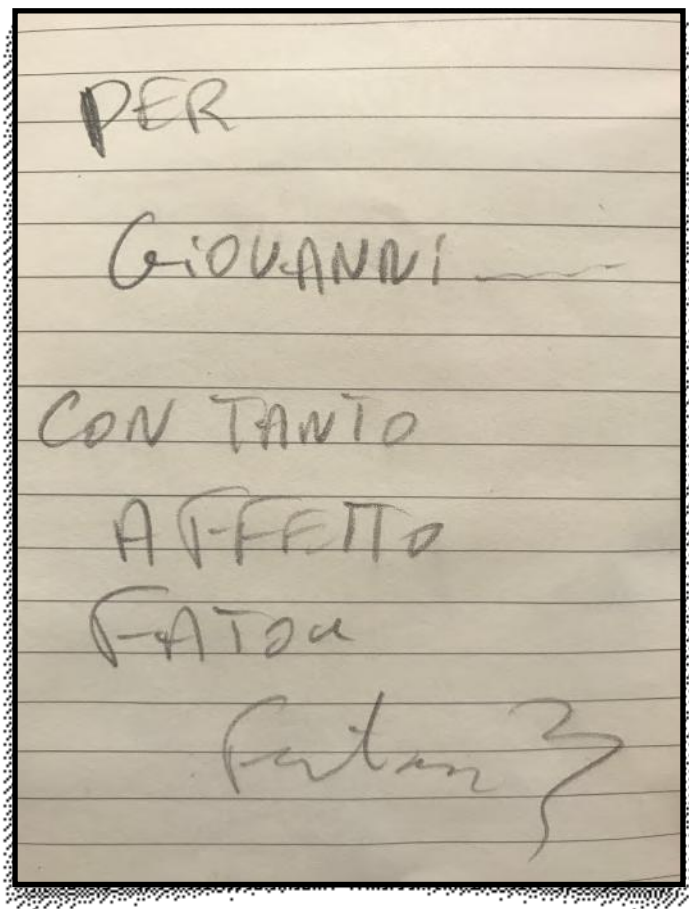 PER
GiOVANNi
CON TANTO
AFFETTO
FATOU